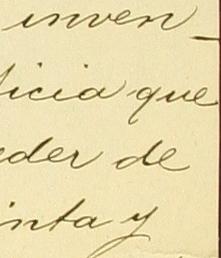 inven-
ticia que
eder de
inta y